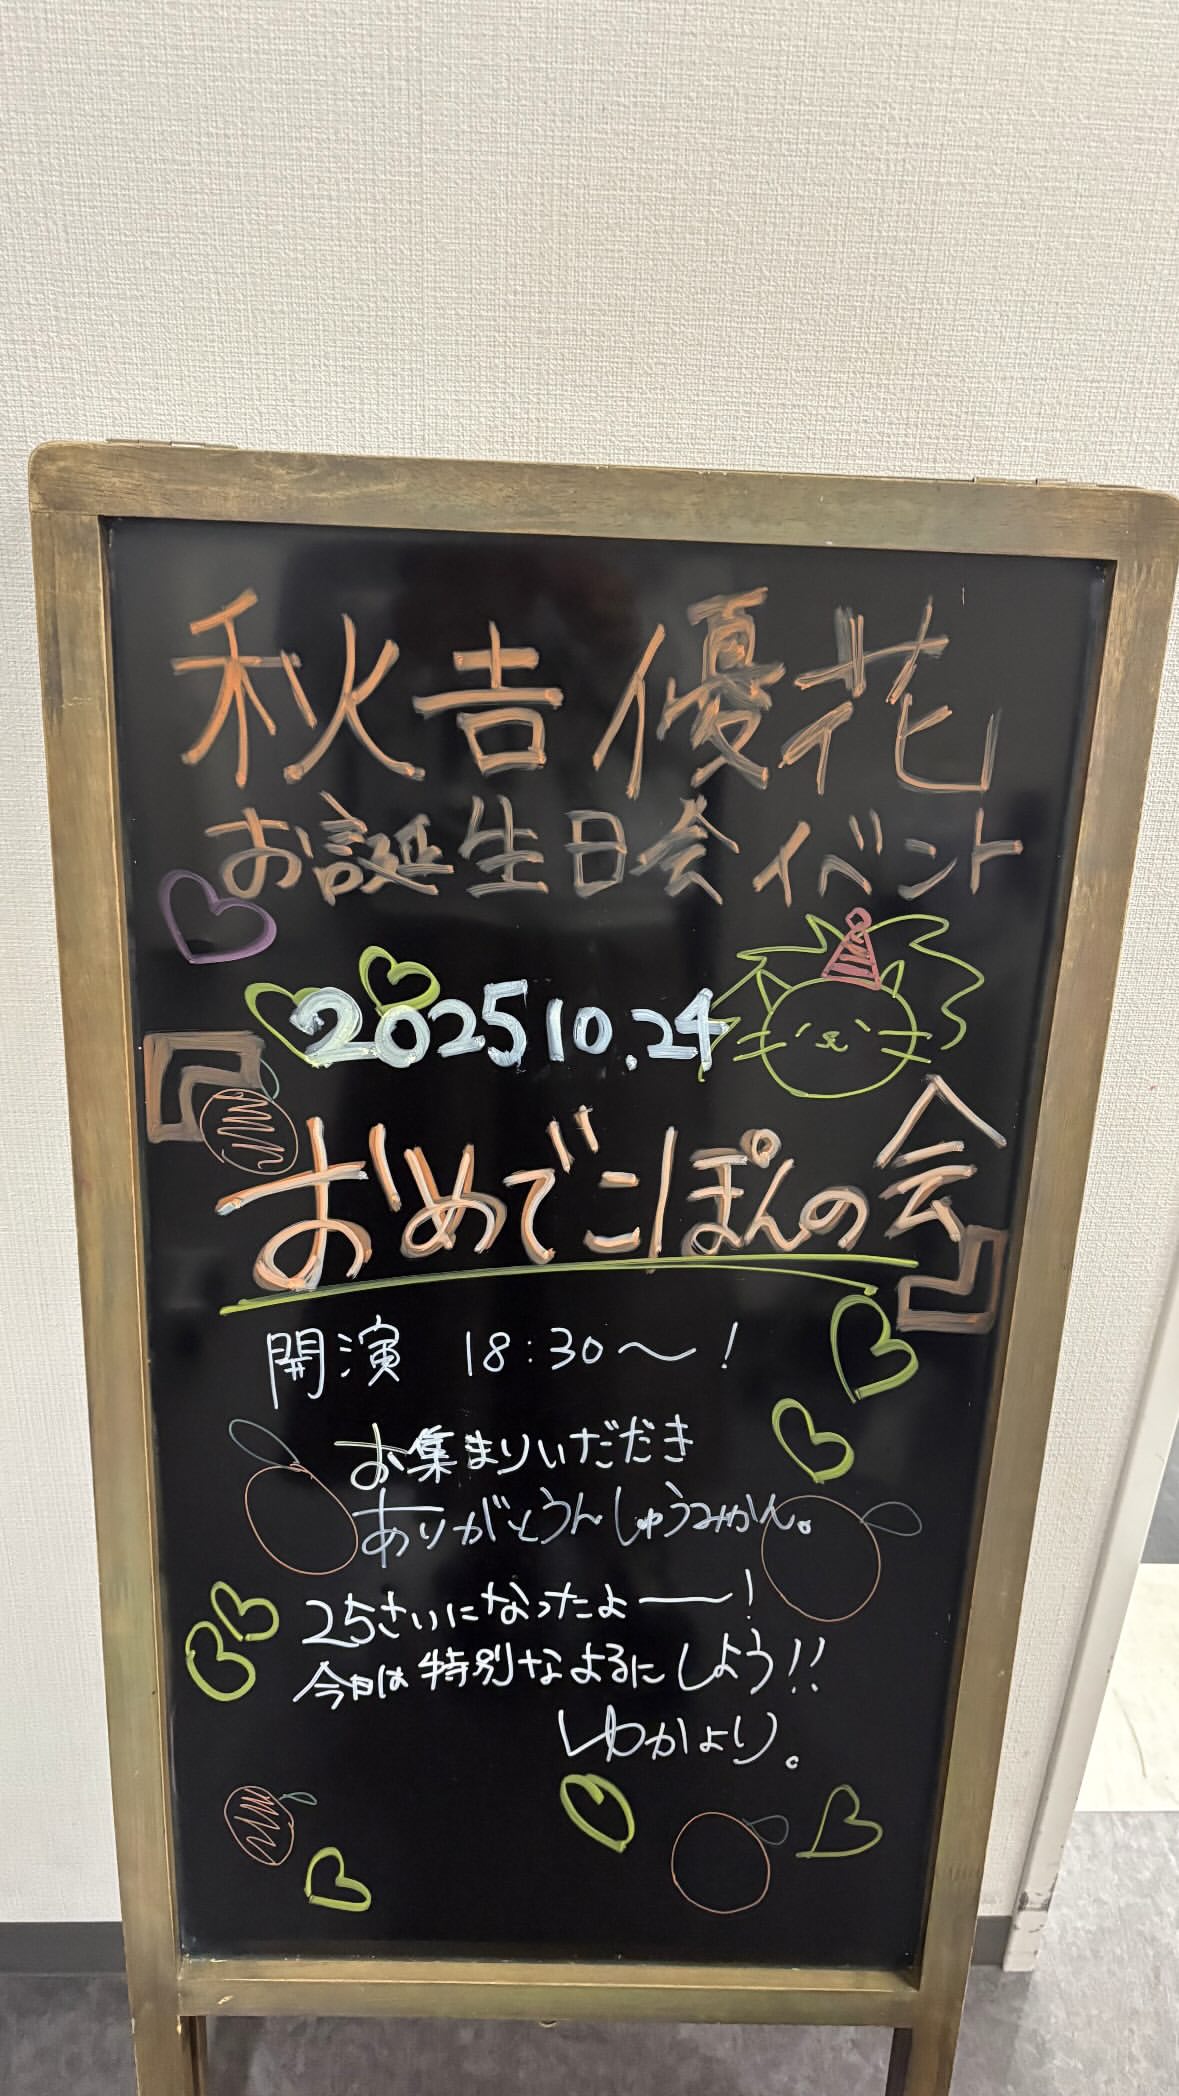 秋吉優花
お誕生日会イベント
2025 10.24
『おめでこぽんの会』
開演 18:30〜！
お集まりいただき
ありがとうんしゅうみかん。
25さいになったよー！
今日は特別なよるにしよう!!
ゆかより。